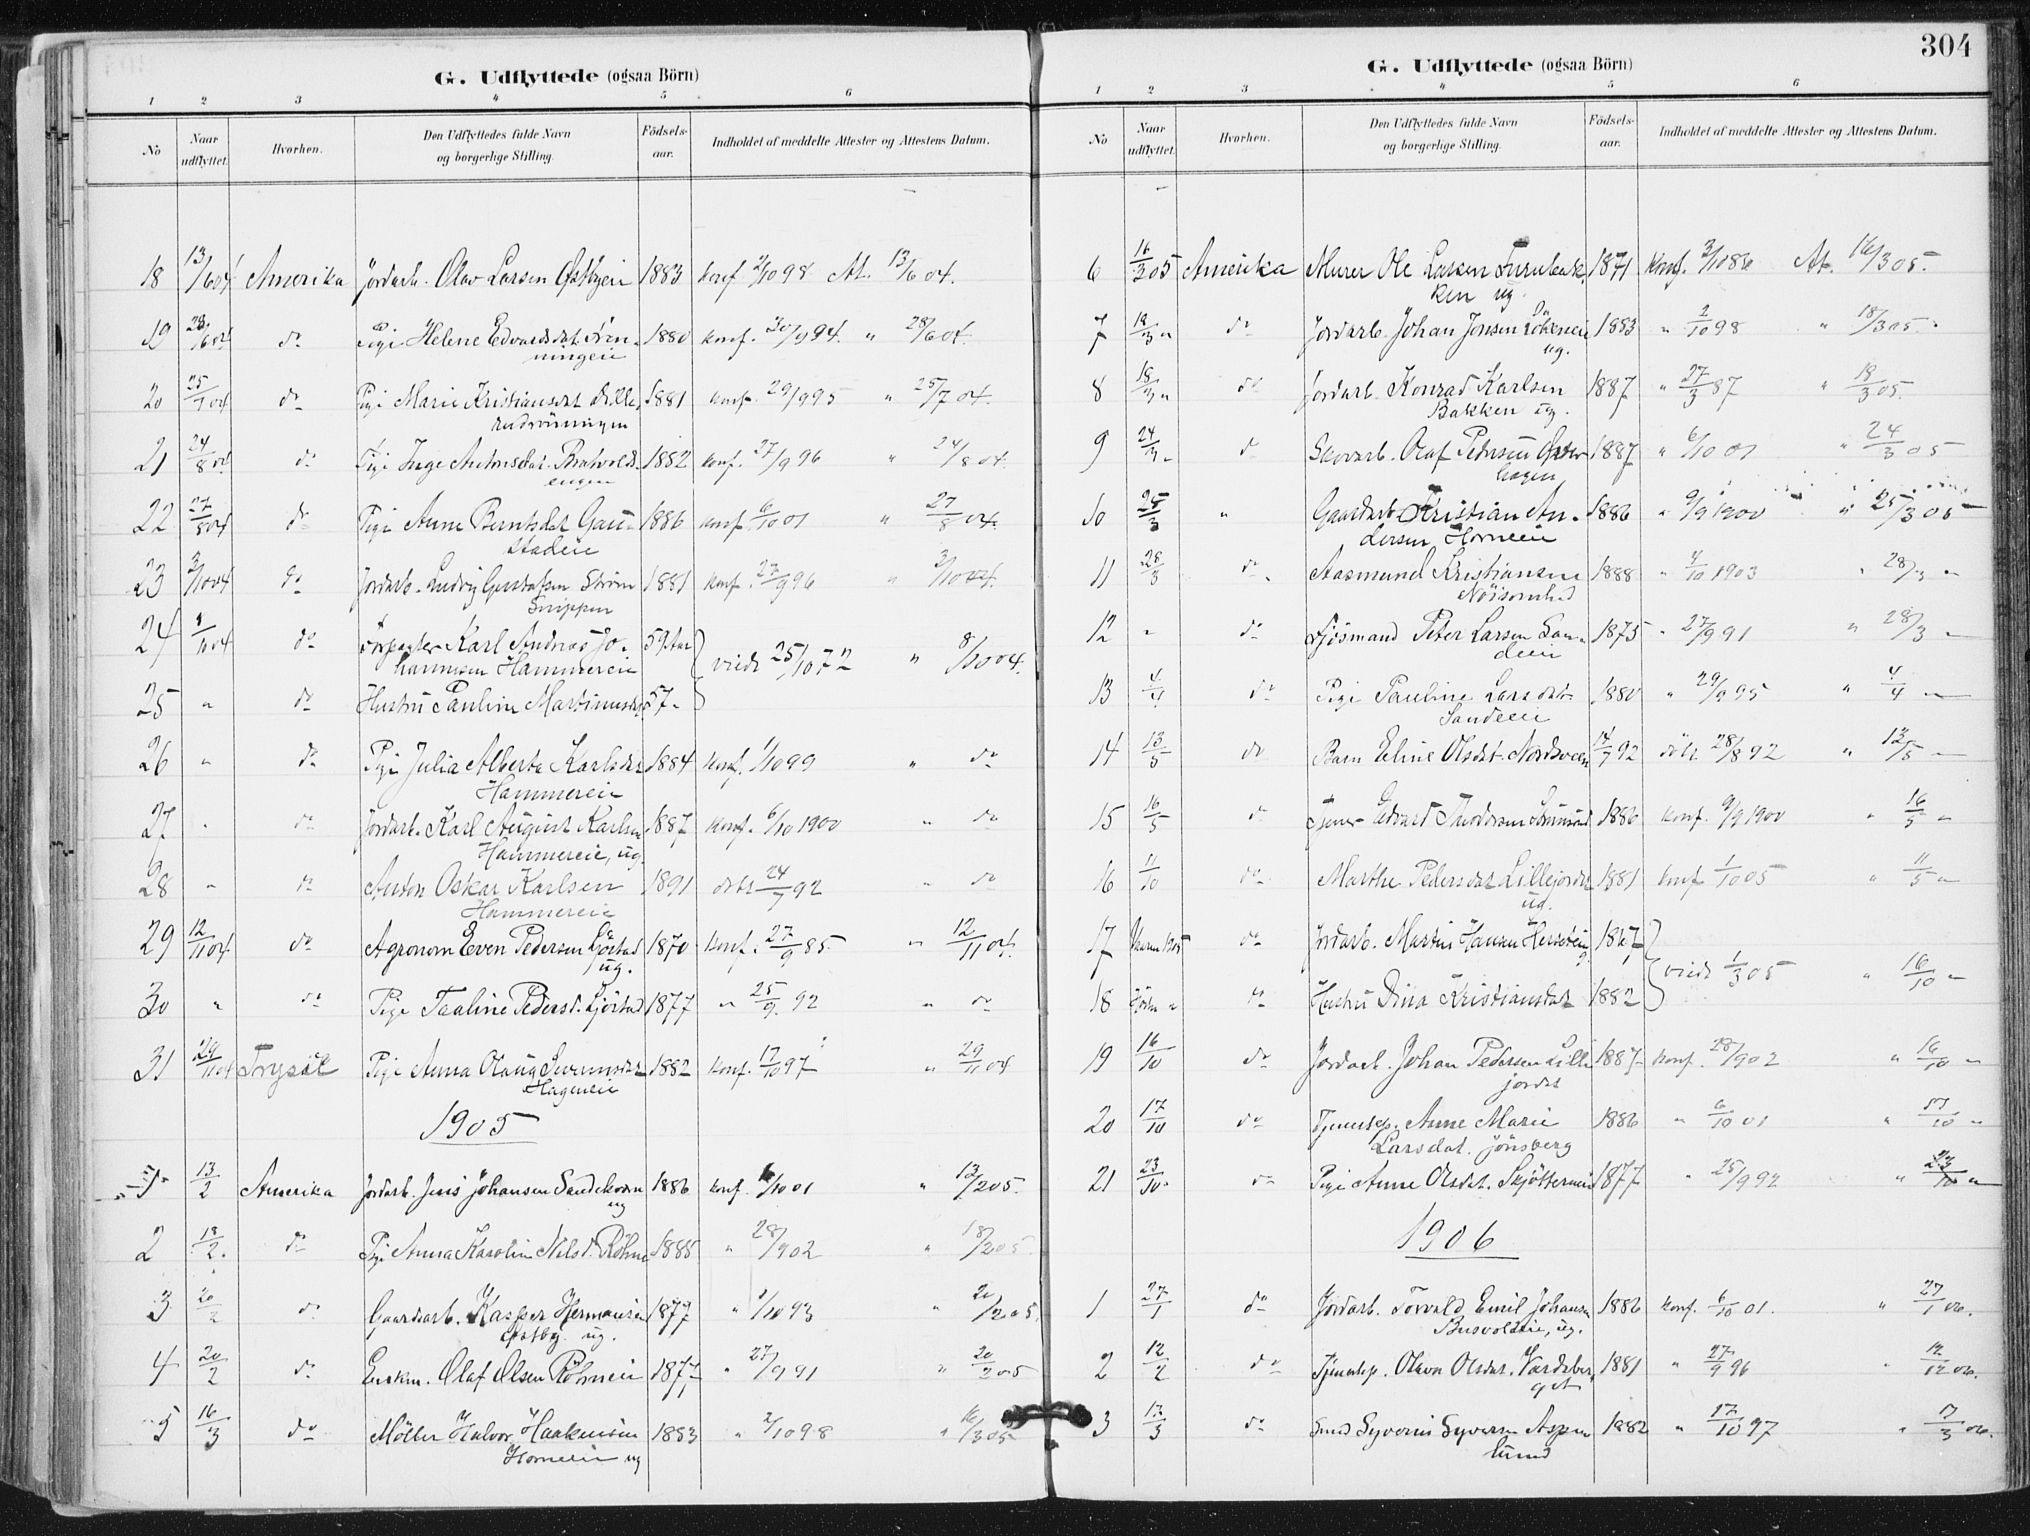 304
G. Udflyttede (ogsaa Börn)
1 2 3 4 5 6
No Naar udflyttet. Hvorhen. Den Udflyttedes fulde Navn og borgerlige Stilling. Födsels-aar. Indholdet af meddelte Attester og Attestens Datum.
18 13/6 04 Amerika Jordarb. Olav Larsen Østbyeie 1883 konf 2/10 98 At. 13/6 04.
19 28/6 04 do Pige Helene Edvardsdat. 1880 konf. 30/9 94. " 28/6 04.
ningeie
20 25/7 04 do Pige Marie Kristiansdat. 1881 konf. 29/9 95 " 25/7 04.
21 24/8 04 do Pige Inge Antonsdat. Bratvolds 1882 konf. 27/9 96 " 24/8 04.
engen
22 27/8 04 do Pige Anne Berntsdat Gau- 1886 konf. 6/10 01 " 27/8 04.
stadeie
23 3/10 04 do Jordarb. Ludvig Gustafsen Strøm 1881 konf. 27/9 96 " 3/10 04.
Snippen
24 8/10 04 do Karl Andreas Jo- 59 Aar
hannesen Hammereie viede 25/10 72 " 8/10 04.
25 " do Hustru Pauline Martinusdat. 57 -
26 " do Pige Julia Alberta Karlsdat 1884 konf. 1/10 99 " do
Hammereie
27 " do Jordarb. Karl August Karlsen 1887 konf. 6/10 1900 " do
Hammereie, ug.
28 " do Anton Oskar Karlsen 1891 döbt 24/7 92 " do
Hammereie
29 12/11 04 do Agronom Even Pedersen Gjörstad 1870 konf. 27/9 85 " 12/11 04.
ug.
30 " do Pige Taaline Pedersd. Gjörstad 1877 " 25/9 92 " do
31 29/11 04 Trysil Pige Anna Olaug 1882 konf. 17/10 97 " 29/11 04
Hageneie
1905
1 13/2 Amerika Jordarb. Jens Johansen 1886 konf 6/10 01 " 13/2 05.
ug
2 18/2. do Pige Anna Karoline Nilsd. Röhne 1885 " 28/9 02 " 18/2 05.
3 20/2 do Gaardarb. Kasper Hermansen 1879 " 1/10 93 " 20/2 05.
Østby ug.
4 20/2 do Olaf Olsen Röhneie 1877 " 27/9 91 " 20/2 05
5 16/3 do Möller Halvor Haakensen 1883 " 2/10 98 " 16/3 05
Horneeie ug
G. Udflyttede (ogsaa Börn)
1 2 3 4 5 6
No Naar udflyttet. Hvorhen. Den Udflyttedes fulde Navn og borgerlige Stilling. Födsels-aar. Indholdet af meddelte Attester og Attestens Datum.
6 16/3 05 Amerika Murer Ole Larsen Furubak- 1871 Konf. 3/10 86 At. 16/3 05.
ken ug.
7 18/3 " do Jordarb. Johan Jonsen 1883 " 2/10 98 " 18/3 05.
ug.
8 18/3 " do Jordarb. Konrad Karlsen 1887 " 27/3 87 " 18/3 05.
Bakken ug.
9 24/3 " do Skovarb. Olaf Pedersen 1887 " 6/10 01 " 24/3 05
hagen
10 25/3 " Gaardarb. Kristian An- 1886 " 9/9 1900 " 25/3 05
dersen Horneeie
11 28/3 do Aasmund Kristiansen 1888 " 4/10 1903 " 28/3 "
Nöisomhed
12 " do Sjömand Peter Larsen San- 1875 " 27/9 91 " 28/3 "
deeie
13 4/4 do Pige Pauline Larsdat. 1880 " 29/9 95 " 4/4 "
Sandeeie
14 13/5 do Barn Eline Olsdat. Nordsveen 14/7 92 döbt 28/8 92 " 13/5 "
15 16/5 do Tjener Edvard 1886 konf. 9/9 1900 " 16/5 "
16 11/10 do Marthe Pedersdat Lillejordet 1881 konf 1/10 05 " 11/5 "
ug.
17 do Jordarb. Martin Hansen 1867
viede 1/3 05 " 16/10 "
18 do Hustru Dina Kristiansdat 1882
19 16/10 do Jordarb. Johan Pedersen Lille 1887 konf. 28/9 02 " 16/10 "
jordet
20 17/10 do Tjenestep. Anne Marie 1886 " 6/10 01 " 17/10 "
Larsdat. Jönsberg
21 23/10. do Pige Anne Olsdat. 1877 " 25/9 92 " 23/10 "
1906
1 27/1 do Jordarb. Torvald Emil Johansen 1886 konf. 6/10 01. " 27/1 06.
ug.
2 12/2 do Tjenestep. Olava Olsdat. Vardeber- 1881 " 27/9 96 " 12/12 06.
get
3 17/3 do Smed Syverin Syversen Aspe 1882 " 17/10 97 " 17/3 06.
lund